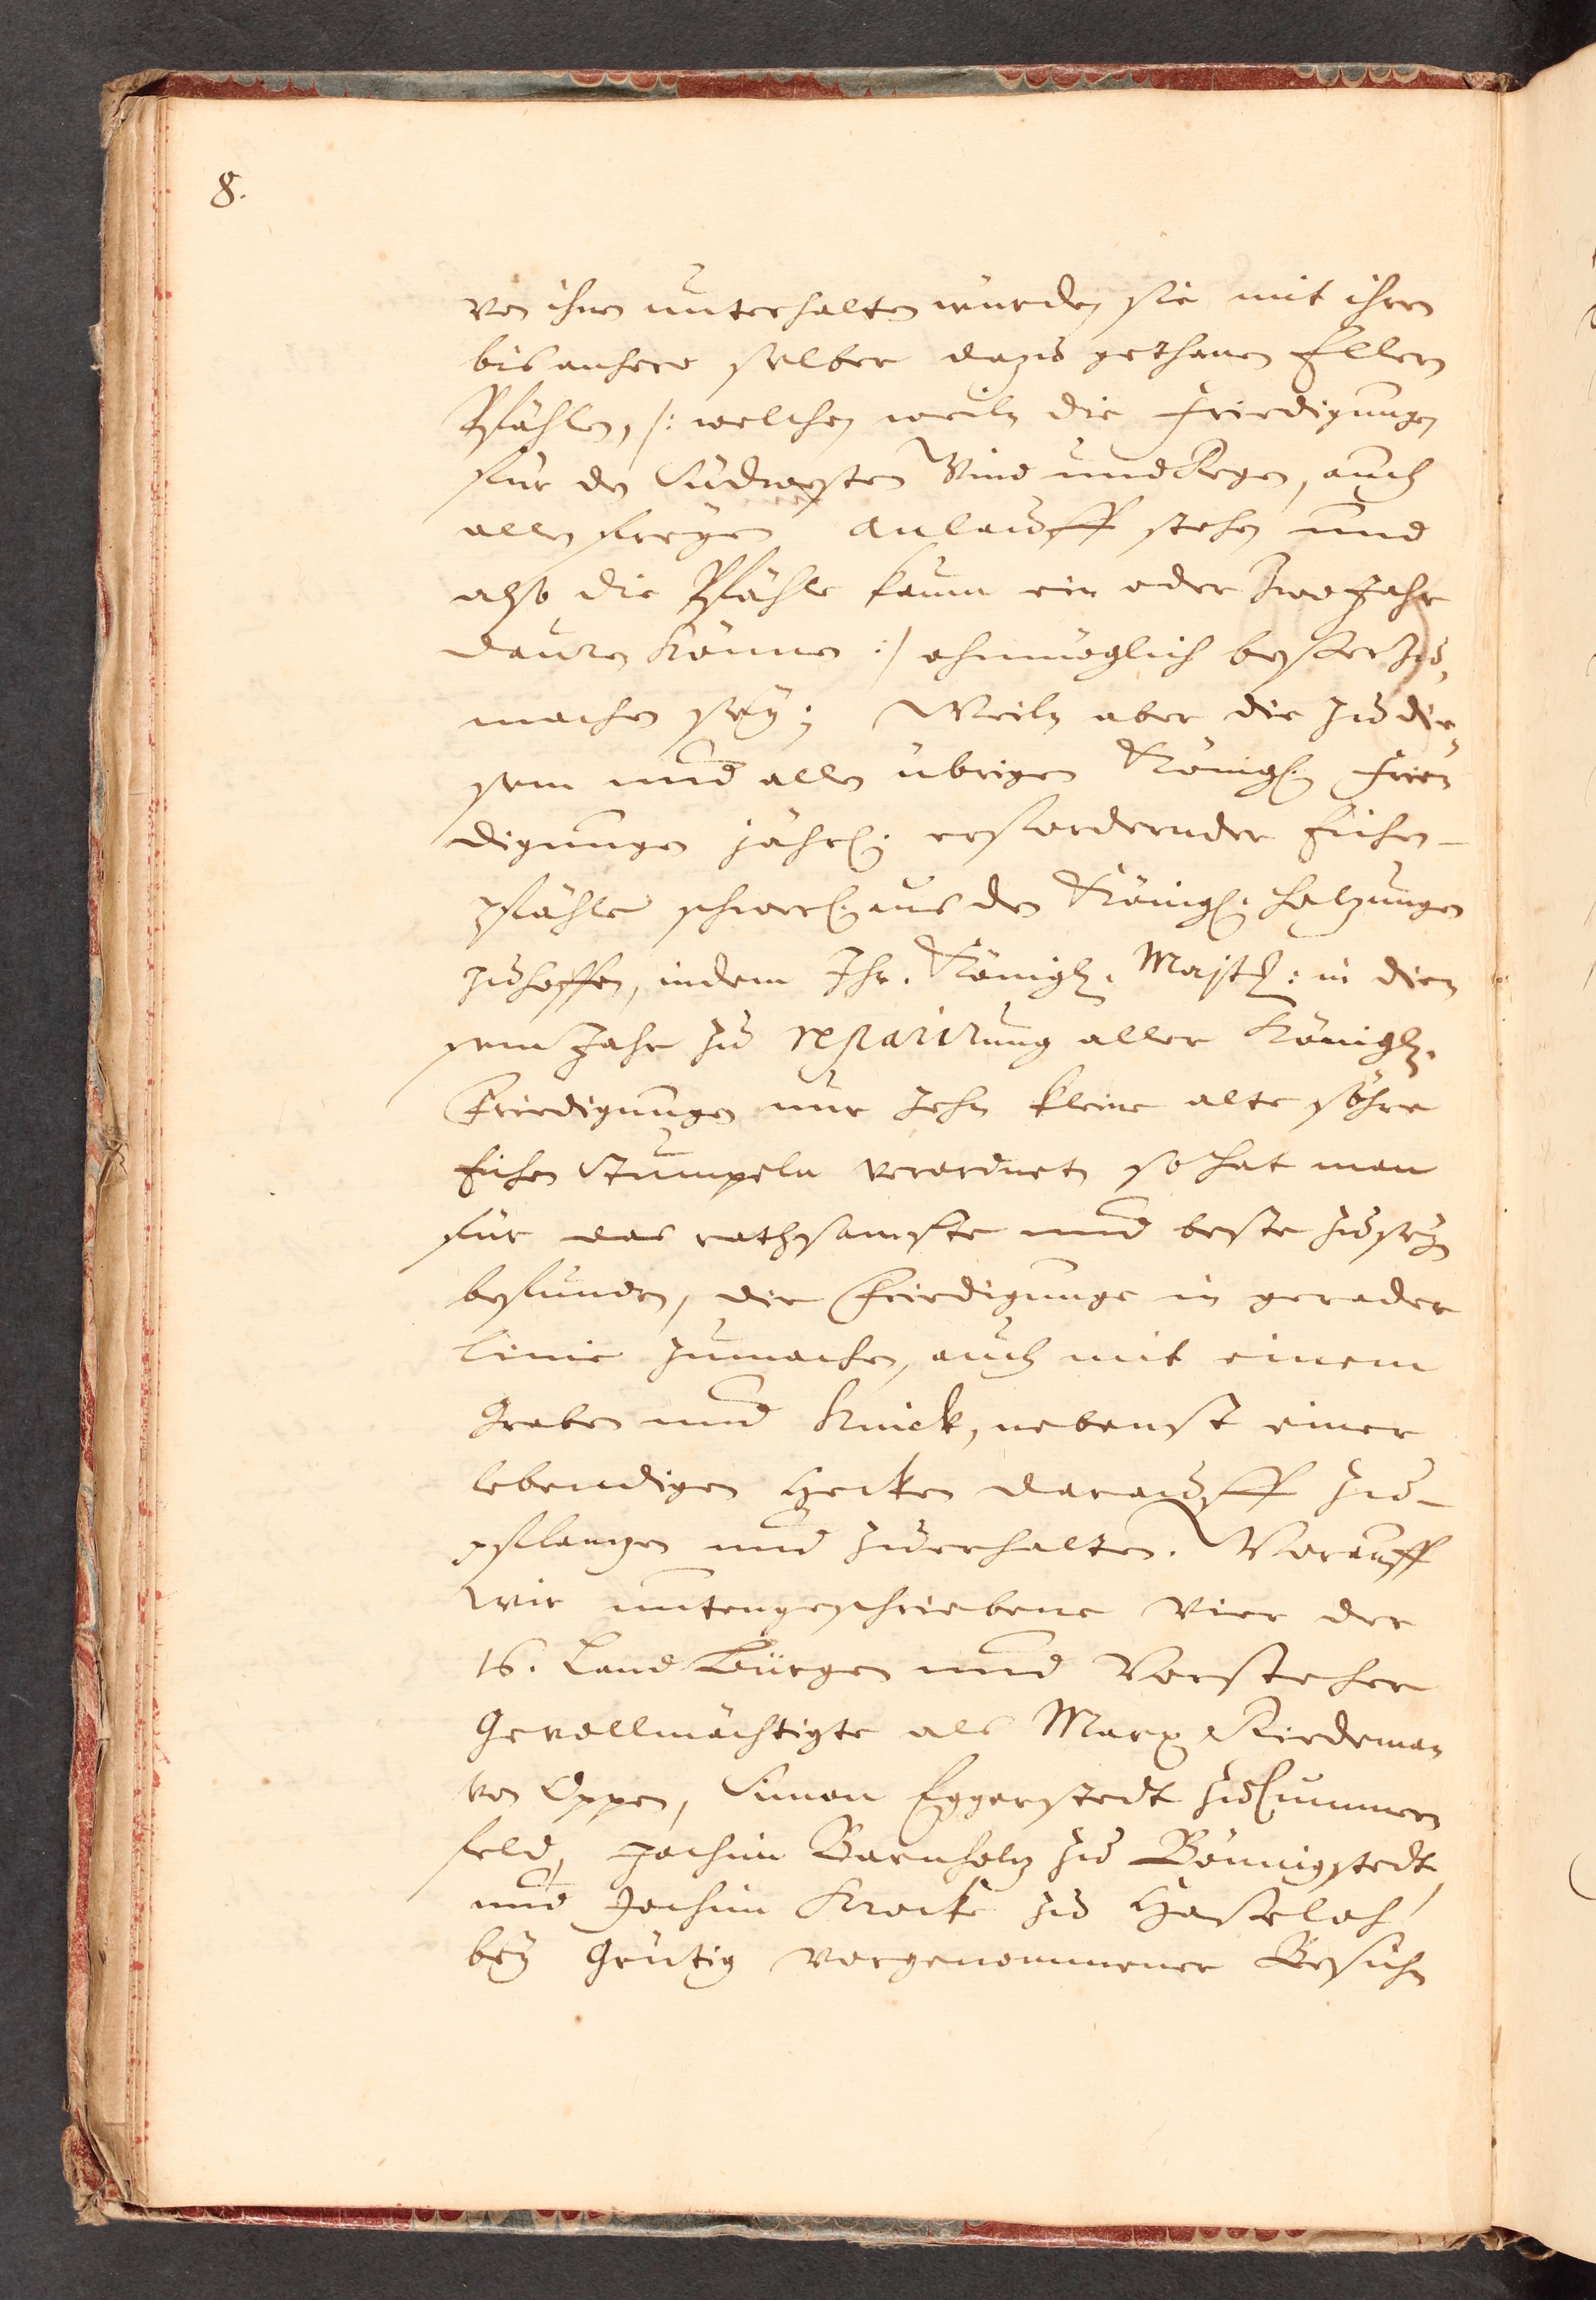 8.
von ihnen unterhalten wurden sie mit ihren
bis anhero selber dazu gethanen Ellern
Pfählen, /: welchen weiln die Friedigungen
für den Südwesten Wind und Regen, auch
allen freyen anlauff stehen und
also die Pfähle kaum ein oder zwo Jahr
dauren können :/ ohnmöglich besser zu
machen sey; Weiln aber die zu die-
sem und allen übrigen Königl. Frie-
digungen jährl. erfordernder Eichen-
pfähle schwerl. aus den Königl. Holzungen
zuhoffen, indem Ihr. Königl. Majst: in die-
sem Jahr zu repari​rung aller Königl.
Friedigungen nur zehn kleine alte söhre
Eichen Stumpeln verordnet, so hat man
für das rathsamste und beste zu seyn
befunden, die Friedigunge in gerader
Linie zumachen, auch mit einem
Graben und Knick, nebenst einer
lebendigen Hecken darauff zu-
pflanzen und zuerhalten. Worauff
wir untengeschriebene Vier der
16. Land Bürgen und Vorsteher
Gevollmächtigte als Marx Kiedeman
von Oppen, Simon Eggerstedt zu Cummer-
feld, Jochim Barnholz zu Bönnigstedt,
und Jochim Krock zu Haseloh,
bey heutig vorgenommener Besich-